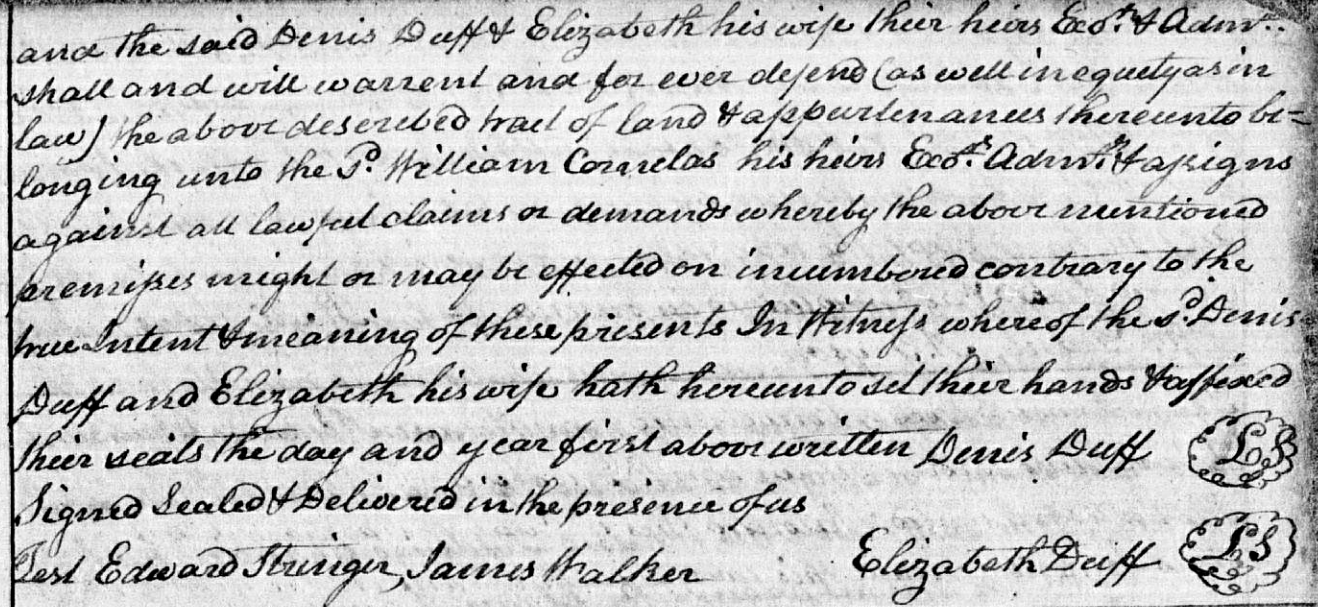 and the said Denis Duff & Elizabeth his wife their heirs Exors. & Admrs.
shall and will warrent and for ever defend (as well in equety as in
law) the above described tract of land & appurtenances thereunto be=
longing unto the Sd. William Cornelas his heirs Exors. Admrs. & assigns
against all lawful claims or demands whereby the above mentioned
premisses might or may be effected on incumbered contrary to the
true Intent & meaning of these presents In Witness whereof the sd. Denis
Duff and Elizabeth his wife hath hereunto set their hands & affixed
their seals the day and year first above written Denis Duff LS
Signed Sealed & Delivered in the presence of us
Test Edward Stringer, James Walker Elizabeth Duff LS